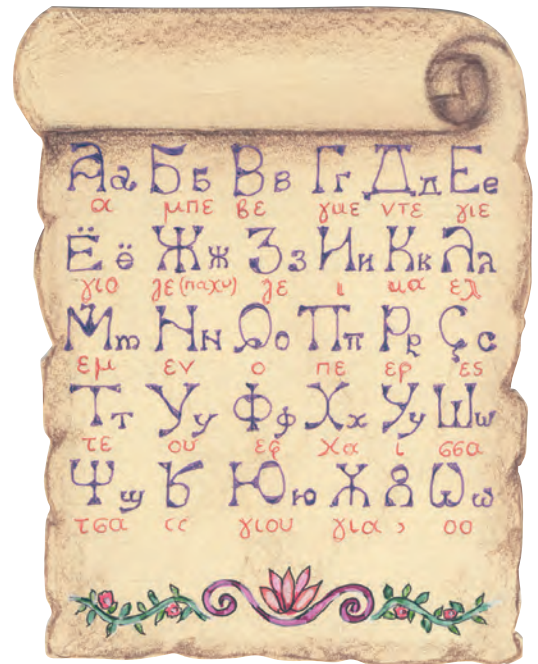 Аа Бб Вв Гг Дд Ее
α μπε βε γκε ντε γιε
Ёё Жж Зз Ии Кк Лл
γιο ζε (παχυ) ζε ι κα ελ
Мм Нн Оо Пп Рр Сс
εμ εν ο πε ερ ες
Тт Уу Фф Хх Уу Шш
τε ού εφ χα ι σσα
Ψψ Ъ Юю Ѫ Ȣ Ѡѡ
τσα γιου για οο